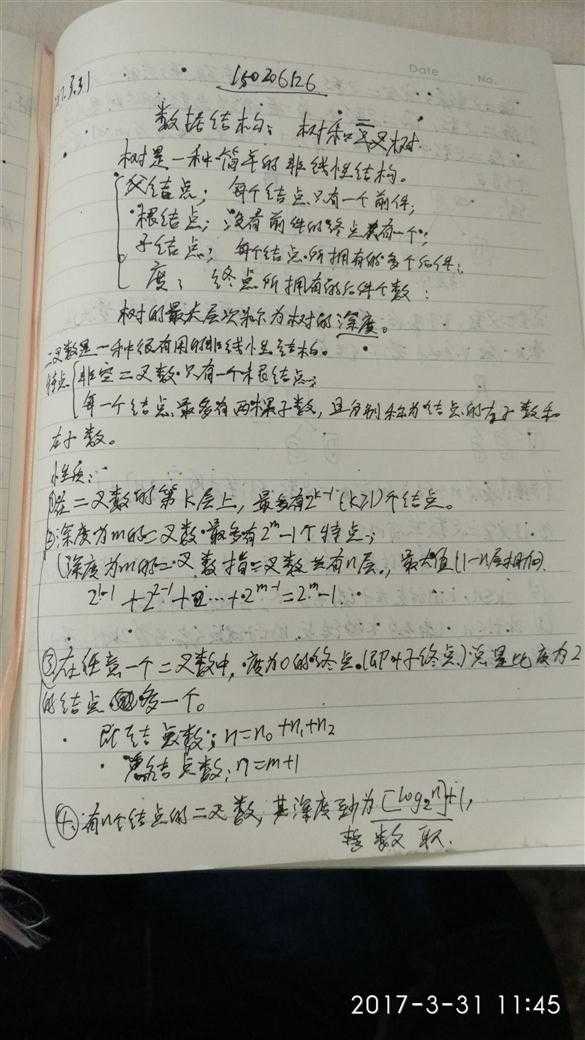 Date
No.
17.3.31
150206126
数据结构：树和二叉树.
树是一种简单的非线性结构。
父结点；每个结点只有一个前件；
根结点；没有前件的终点只有一个；
子结点；每个结点所拥有的多个后件；
度；终点所拥有的后件个数：
树的最大层次称为树的深度。
二叉数是一种很有用的非线性结构。
特点 非空二叉数只有一个根结点；
每一个结点最多有两棵子数，且分别称为结点的左子数和
右子数。
性质：
①在二叉数的第K层上，最多有2^{k-1}(k≥1)个结点。
②深度为m的二叉数最多有2^m-1个特点；
(深度为m的二叉数指二叉数共有n层，最大值(1-n层相加).
2^{1-1}+2^{2-1}+…+2^{m-1}=2^m-1.
③在任意一个二叉数中，度为0的终点(即叶子终点)总是比度为2
的结点多一个。
即总结点数；n=n₀+n₁+n₂
总结点数；n=m+1
④.有n个结点的二叉数，其深度至少为[log₂n]+1，
整数取.
2017-3-31 11:45